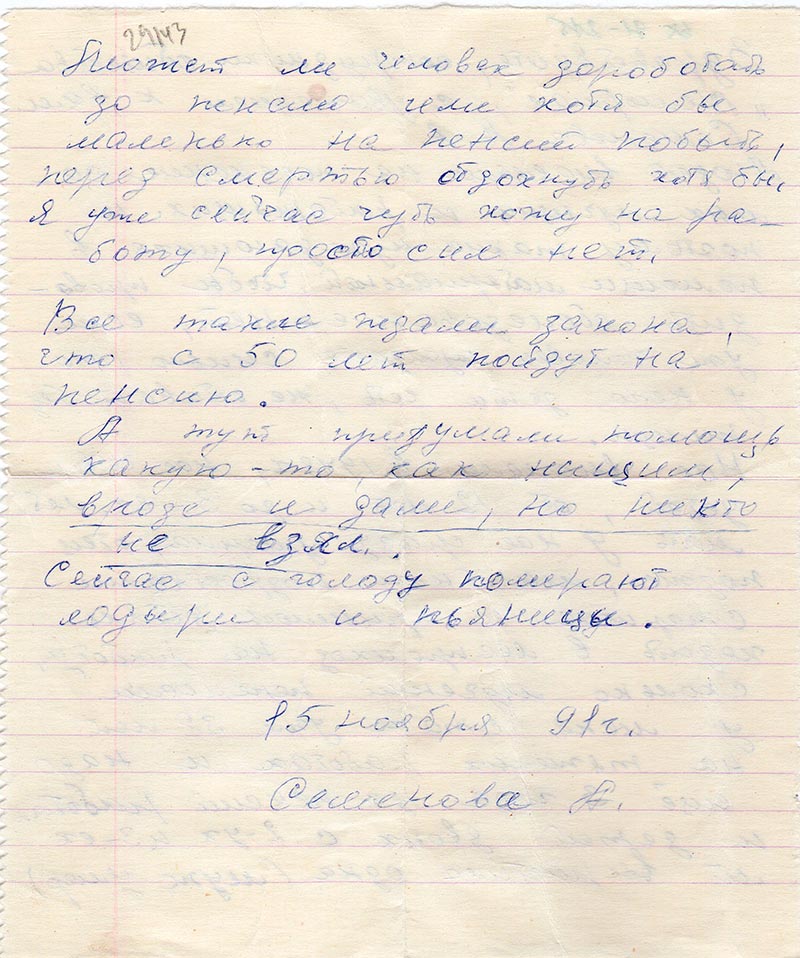 29/43
Может ли человек зароботать
за пенсию чем хотя бы
маленько на пенсии побыть,
перед смертью отдохнуть хотя бы,
я уже сейчас чуть хожу на ра-
боту, просто сил нет.
Все такие ждали закона,
что с 50 лет пойдут на
пенсию.
А тут придумали помощь
какую-то, как нищим,
вроде и дали, но, никто
не взял.
Сейчас с голоду помирают
лодыри и пьяницы.
15 ноября 91г.
Семенова А.